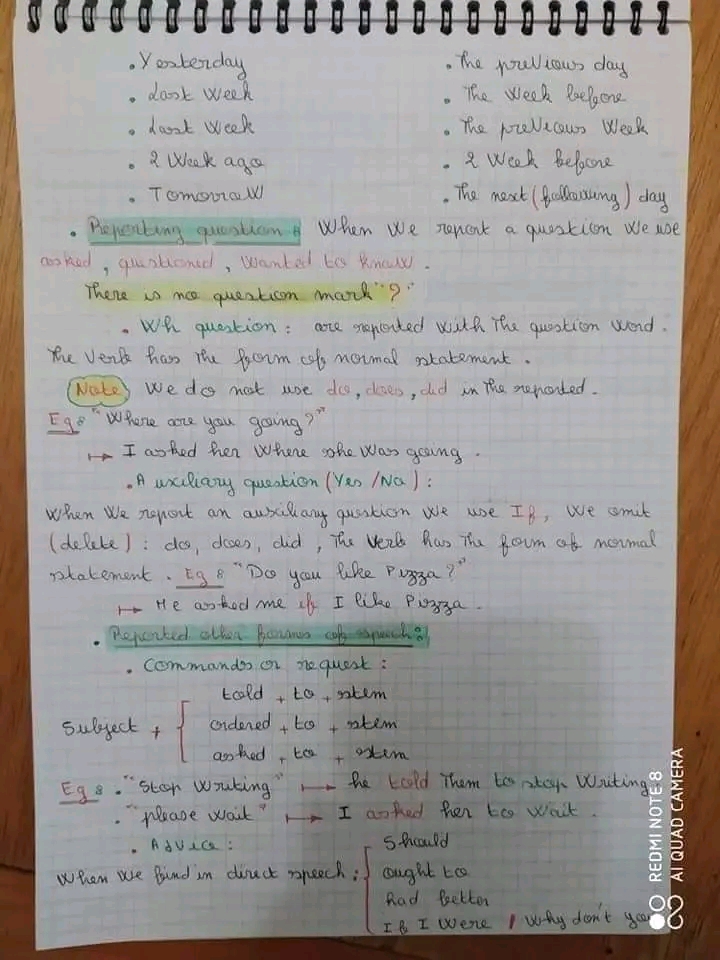 . Yesterday . The previous day
. Last Week . The Week before
. Last Week . The previous Week
. 2 Week ago . 2 Week before
. Tomorrow . The next (following) day
. Reporting question : When We report a question We use
asked , questioned , Wanted to know .
There is no question mark "?"
. Wh question : are reported With The question Word .
The Verb has The form of normal statement .
Note We do not use do, does, did in The reported .
Eg : "Where are you going?"
↦ I asked her Where she Was going .
. Auxiliary question (Yes /No) :
When We report an auxiliary question We use If, We omit
(delete) : do, does, did , The Verb has The form of normal
statement . Eg : "Do you like Pizza?"
↦ He asked me if I like Pizza .
. Reported other forms of speech :
. Commands or request :
told + to + stem
Subject + { ordered + to + stem
asked + to + stem
Eg : . "Stop Writing" ↦ he told Them to stop Writing.
. "please Wait" ↦ I asked her to Wait .
. Advice :
Should
When We find in direct speech : { ought to
had better
If I Were / Why don't you
REDMI NOTE 8
AI QUAD CAMERA